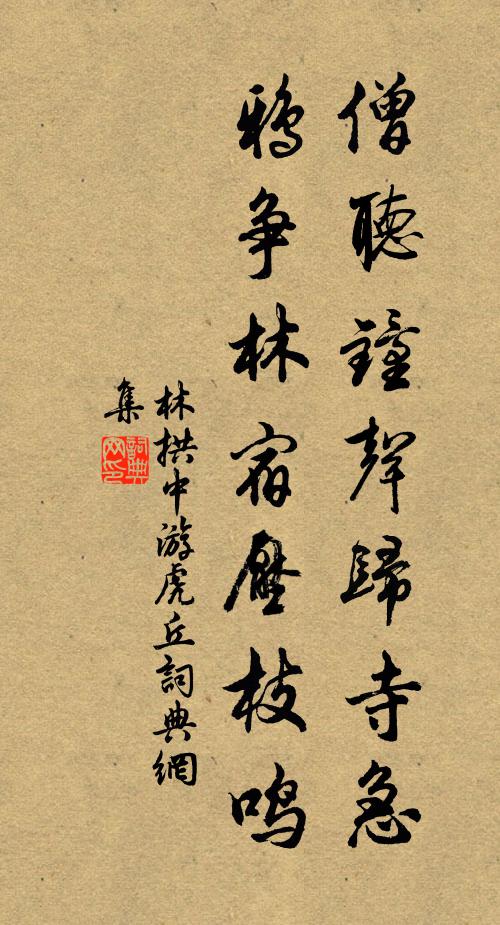 僧聽鐘聲歸寺急
鴉爭林宿壓枝鳴
林拱中游虎丘詞典網
集
詞典網印